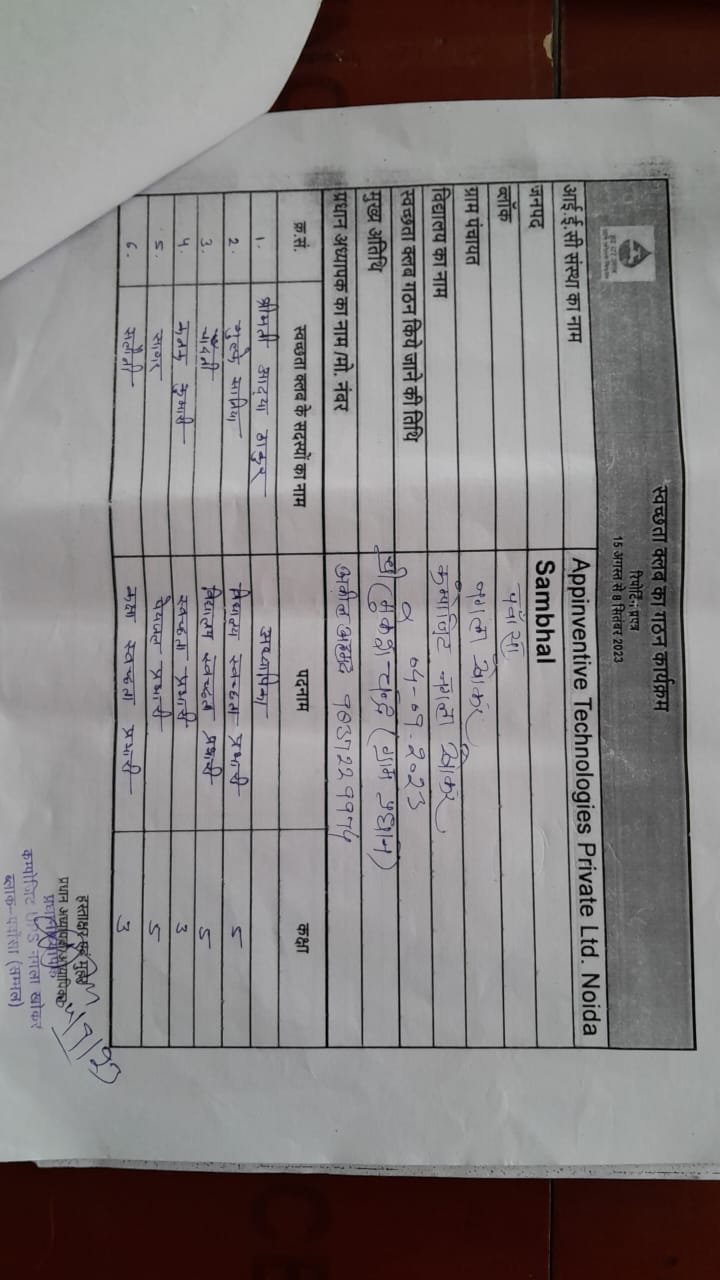 हर घर जल
स्वच्छता क्लब का गठन कार्यक्रम
रिपोर्टिंग प्रपत्र
15 अगस्त से 8 सितंबर 2023
आई.ई.सी संस्था का नाम Appinventive Technologies Private Ltd. Noida
जनपद Sambhal
ब्लॉक पवांसा
ग्राम पंचायत नगला खोकर
विद्यालय का नाम कम्पोजिट नगला खोकर
स्वच्छता क्लब गठन किये जाने की तिथि 04-09-2023
मुख्य अतिथि श्री मुकेश चन्द्र (ग्राम प्रधान)
प्रधान अध्यापक का नाम /मो. नंबर अहमद
क्र.सं. स्वच्छता क्लब के सदस्यों का नाम पदनाम कक्षा
१. श्रीमती आद्या ठाकुर अध्यापिका
२. विद्यालय स्वच्छता प्रभारी 5
३. विद्यालय स्वच्छता प्रभारी 5
४. कुमारी स्वच्छता प्रभारी 3
५. सागर पेयजल प्रभारी 5
६. सलोनी कक्षा स्वच्छता प्रभारी 3
हस्ताक्षर मुहर
प्रधान अध्यापक/अध्यापिका
प्रधानाध्यापक
कम्पोजिट नगला खोकर
ब्लाक-पवांसा (सम्भल)